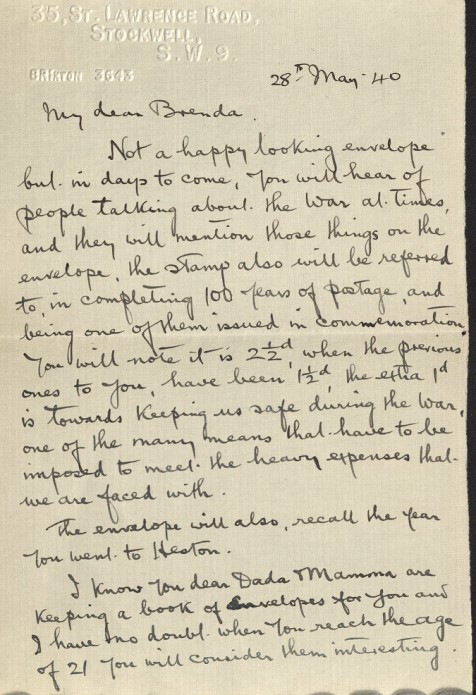 35, St. Lawrence Road,
Stockwell,
S.W.9.
Brixton 3643
28th May-40
My dear Brenda.
Not a happy looking envelope
but. in days to come, you will hear of
people talking about. the War at. times,
and they will mention those things on the
envelope, the stamp also will be referred
to, in completing 100 years of postage, and
being one of them issued in commemoration,
You will note it is 2½d, when the previous
ones to you, have been 1½d, the extra 1d
is towards keeping us safe during the War,
one of the many means that. have to be
imposed to meet. the heavy expenses that.
we are faced with.
The envelope will also, recall the year
you went. to Heston.
I know you dear Dada & Mamma are
keeping a book of envelopes for you and
I have no doubt. when you reach the age
of 21 you will consider them interesting.